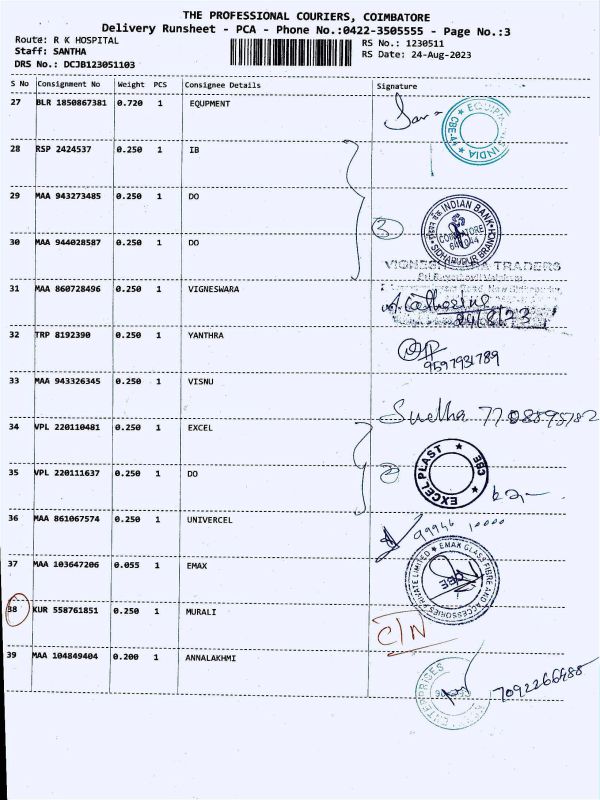 THE PROFESSIONAL COURIERS, COIMBATORE
Delivery Runsheet - PCA - Phone No.:0422-3505555 - Page No.:3
Route: R K HOSPITAL
RS No.: 1230511
Staff: SANTHA
RS Date: 24-Aug-2023
DRS No.: DCJB123051103
S No Consignment No Weight PCS Consignee Details Signature
27 BLR 1850867381 0.720 1 EQUPMENT
CBE-44 ★ INDIA ★
28 RSP 2424537 0.250 1 IB
29 MAA 943273485 0.250 1 DO
3
INDIAN BANK
COIMBATORE
641 044
SIDHAPUDUR BRANCH
30 MAA 944028587 0.250 1 DO
TRADERS
31 MAA 860728496 0.250 1 VIGNESWARA
24/8/23
32 TRP 8192390 0.250 1 YANTHRA
9597931789
33 MAA 943326345 0.250 1 VISNU
Sudha 7708895782
34 VPL 220110481 0.250 1 EXCEL
35 VPL 220111637 0.250 1 DO
2
EXCEL PLAST ★ CBE ★
36 MAA 861067574 0.250 1 UNIVERCEL
99946 10000
37 MAA 103647206 0.055 1 EMAX
★ EMAX GLASS FIBRE AND ACCESSORIES PRIVATE LIMITED
CBE
38 KUR 558761851 0.250 1 MURALI
C/N
39 MAA 104849404 0.200 1 ANNALAKHMI
ENTERPRISES
7092266488